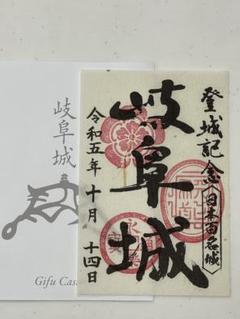 登城記念〈日本百名城〉
岐阜城
令和五年 十月 十四日
岐阜城
Gifu Cas